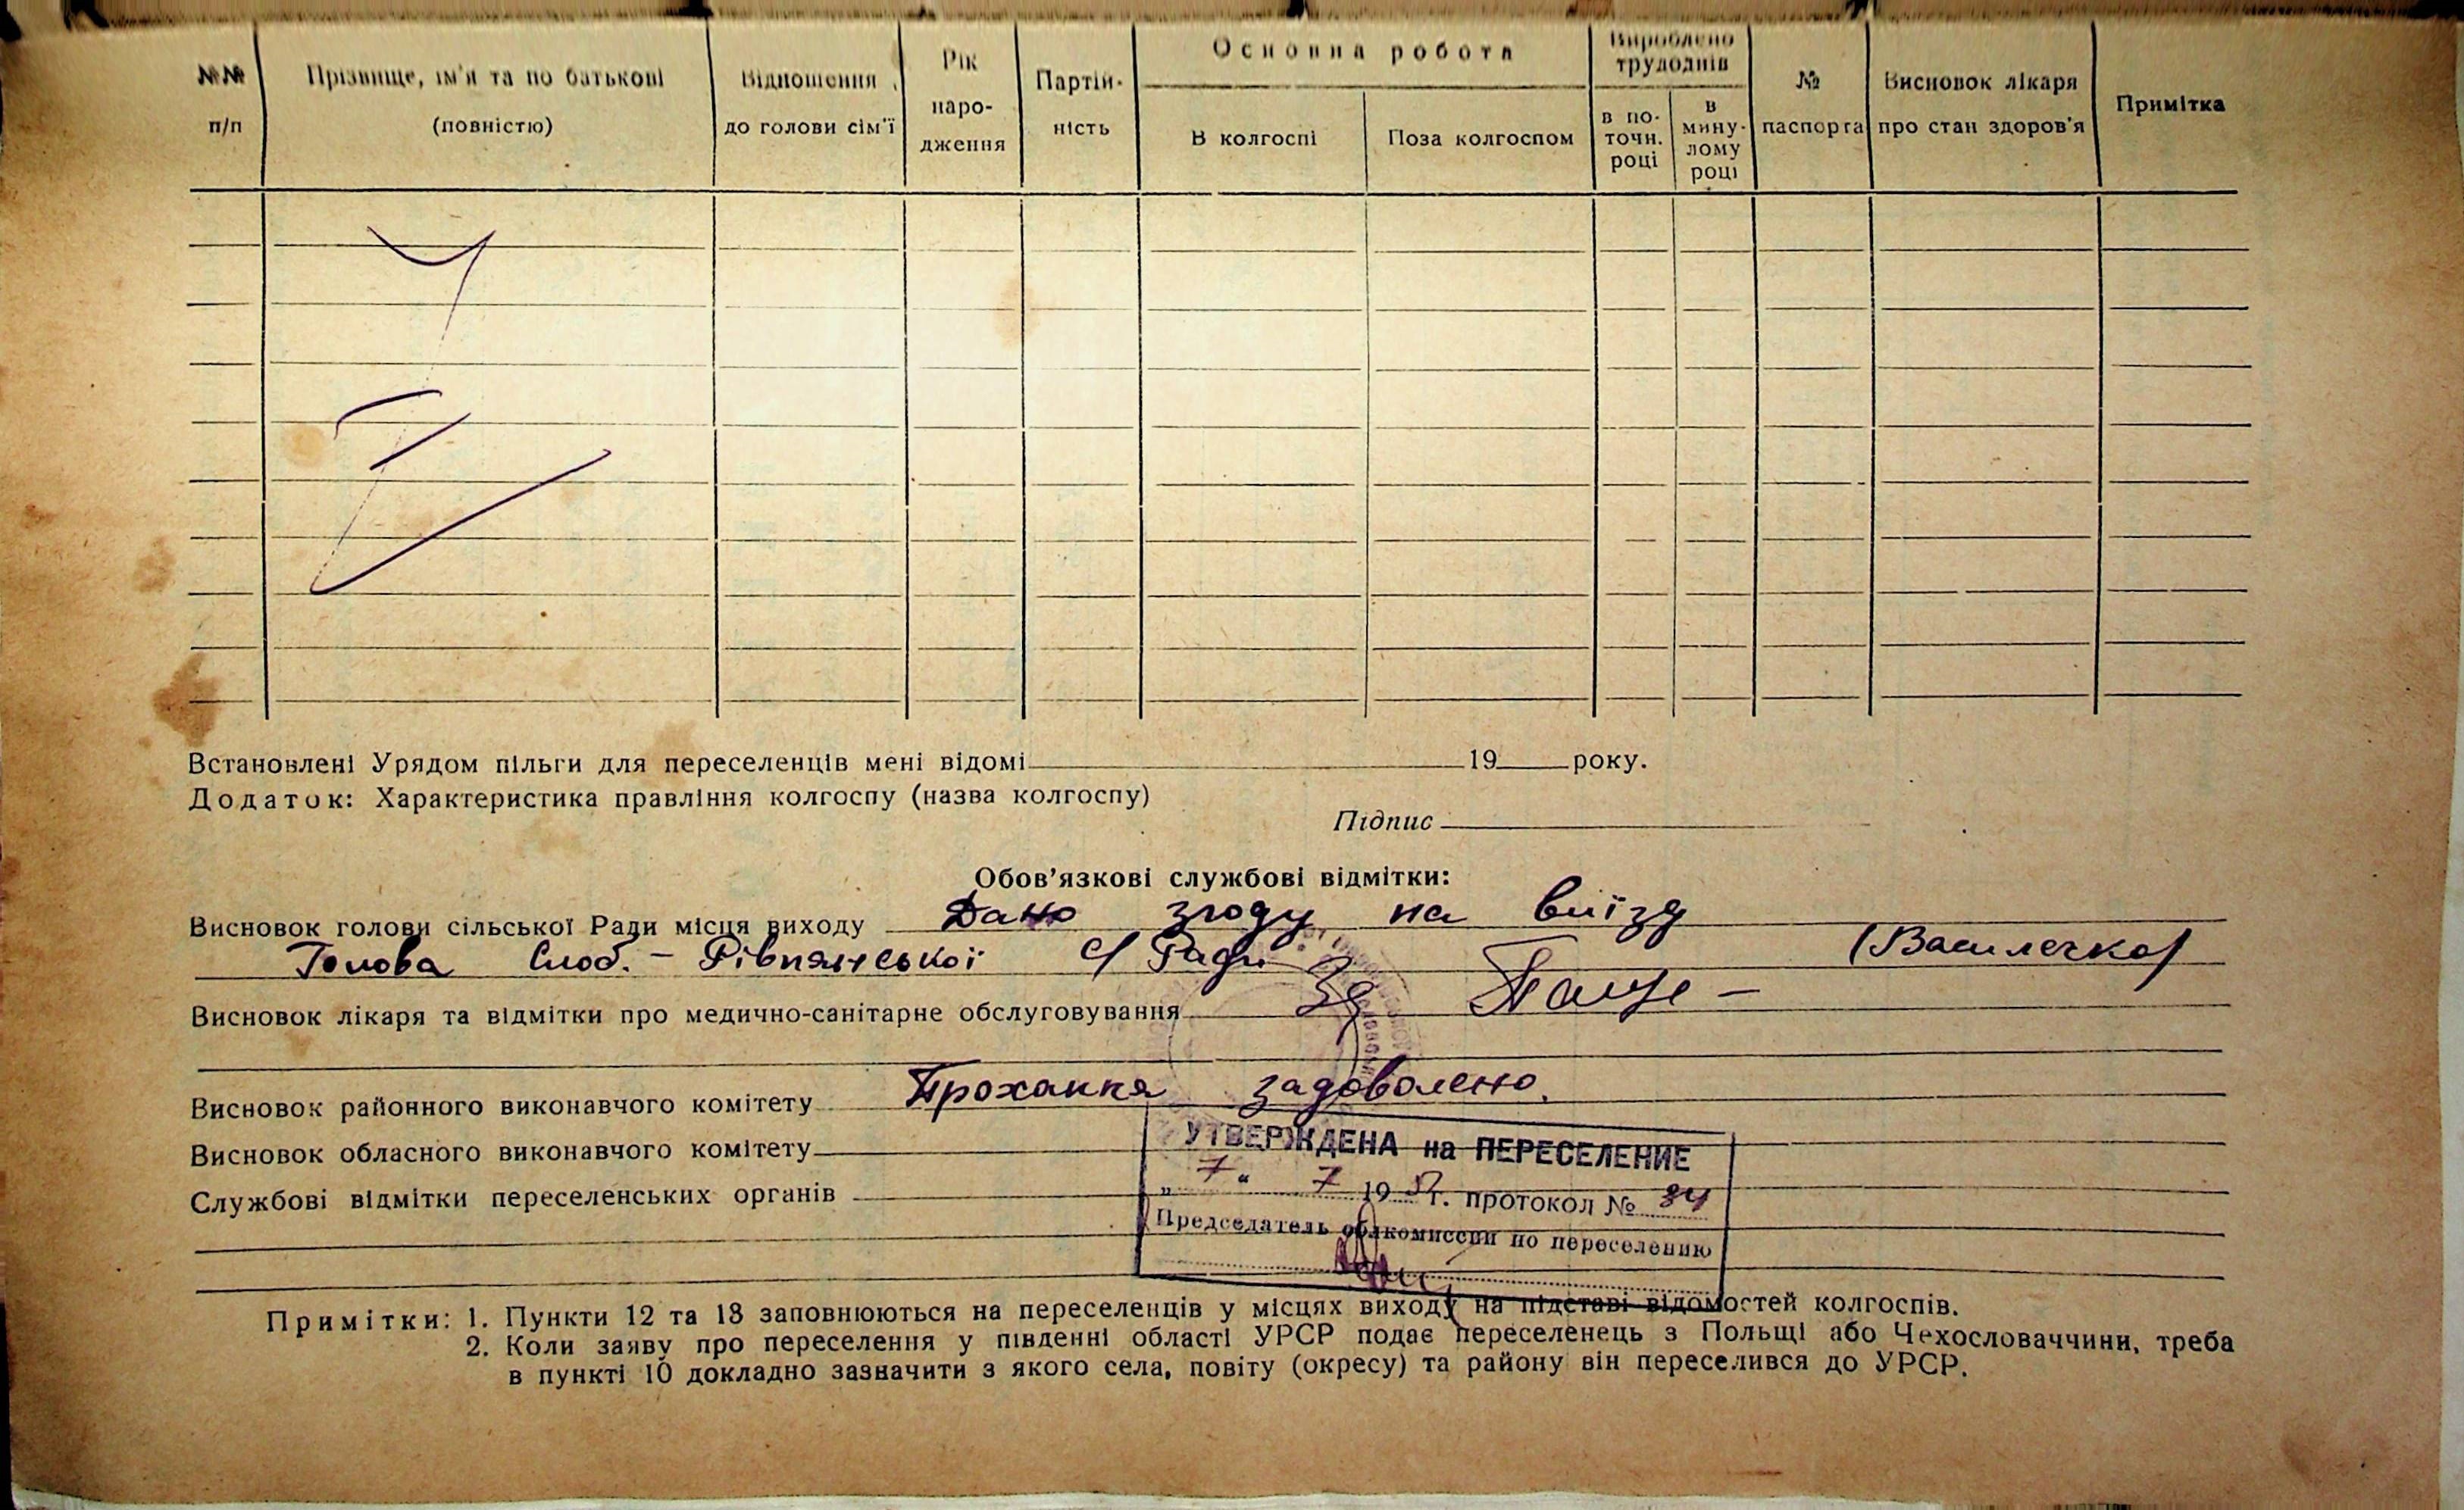 №№ п/п
Прізвище, ім'я та по батькові (повністю)
Відношення до голови сім'ї
Рік народження
Партійність
Основна робота
В колгоспі
Поза колгоспом
Вироблено трудоднів
в поточн. році
в минулому році
№ паспорта
Висновок лікаря про стан здоров'я
Примітка
Встановлені Урядом пільги для переселенців мені відомі 19 року.
Додаток: Характеристика правління колгоспу (назва колгоспу)
Підпис
Обов'язкові службові відмітки:
Висновок голови сільської Ради місця виходу Дано згоду на виїзд
Голова Слоб.-Рівнянської с/Ради (Василечко)
Висновок лікаря та відмітки про медично-санітарне обслуговування
Висновок районного виконавчого комітету Прохання задоволено.
Висновок обласного виконавчого комітету
УТВЕРЖДЕНА на ПЕРЕСЕЛЕНИЕ
Службові відмітки переселенських органів
„7“ 7 19 г. протокол № 84
Председатель облкомиссии по переселению
Примітки: 1. Пункти 12 та 13 заповнюються на переселенців у місцях виходу на підставі відомостей колгоспів.
2. Коли заяву про переселення у південні області УРСР подає переселенець з Польщі або Чехословаччини, треба
в пункті 10 докладно зазначити з якого села, повіту (окресу) та району він переселився до УРСР.